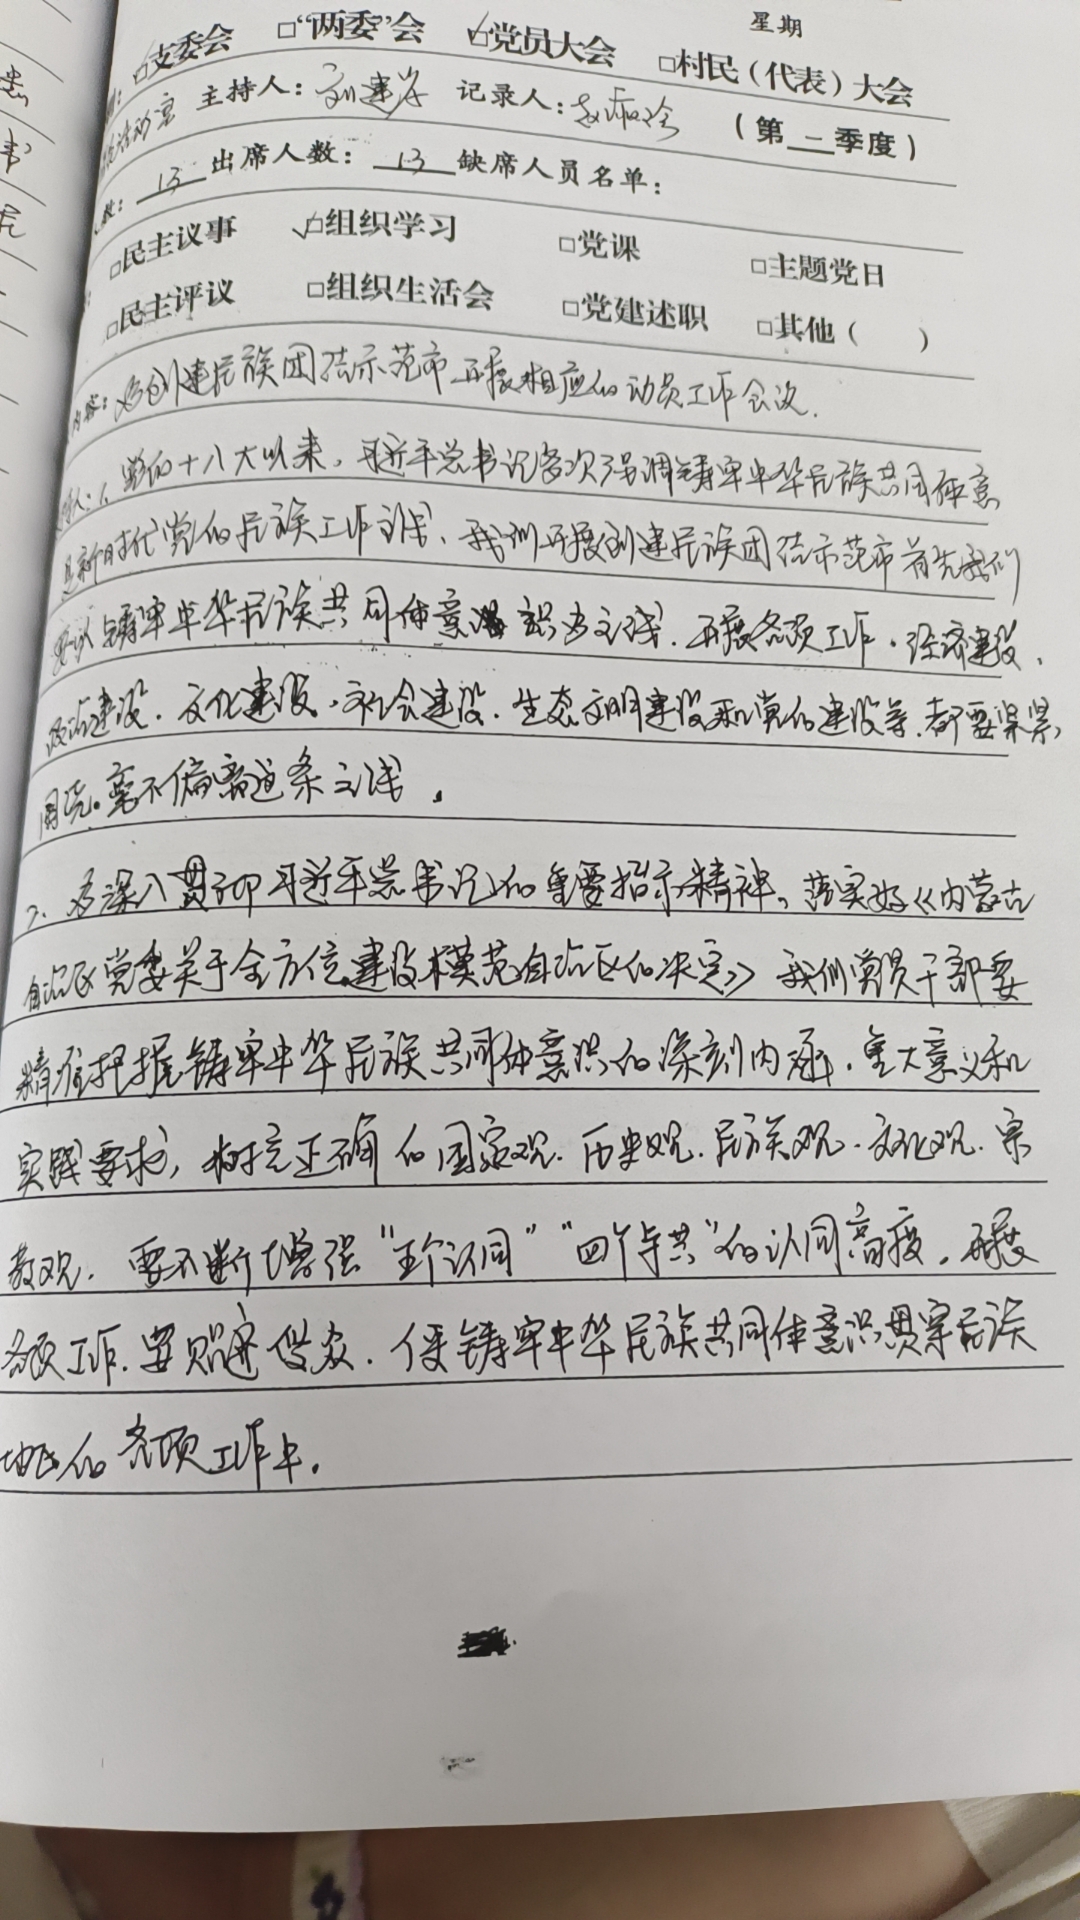 星期
☑支委会 □“两委”会 ☑党员大会 □村民（代表）大会
活动室 主持人： 记录人： （第一季度）
数：13 出席人数：13 缺席人员名单：
□民主议事 ☑组织学习 □党课 □主题党日
□民主评议 □组织生活会 □党建述职 □其他（ ）
内容：为创建民族团结示范市开展相应的动员工作会议.
持人：1、党的十八大以来，习近平总书记多次强调铸牢中华民族共同体意
是新时代党的民族工作主线、我们开展创建民族团结示范市首先我们
要以铸牢中华民族共同体意识为主线.开展各项工作.经济建设、
政治建设.文化建设.社会建设.生态文明建设和党的建设等.都要紧紧
围绕.毫不偏离这条主线.
2、为深入贯彻习近平总书记的重要指示精神、落实好《内蒙古
自治区党委关于全方位建设模范自治区的决定》我们党员干部要
精准把握铸牢中华民族共同体意识的深刻内涵.重大意义和
实践要求,树立正确的国家观.历史观.民族观.文化观.宗
教观.要不断增强“五个认同”“四个与共”的认同高度.开展
各项工作.要 铸牢中华民族共同体意识贯穿民族
地区的各项工作中.